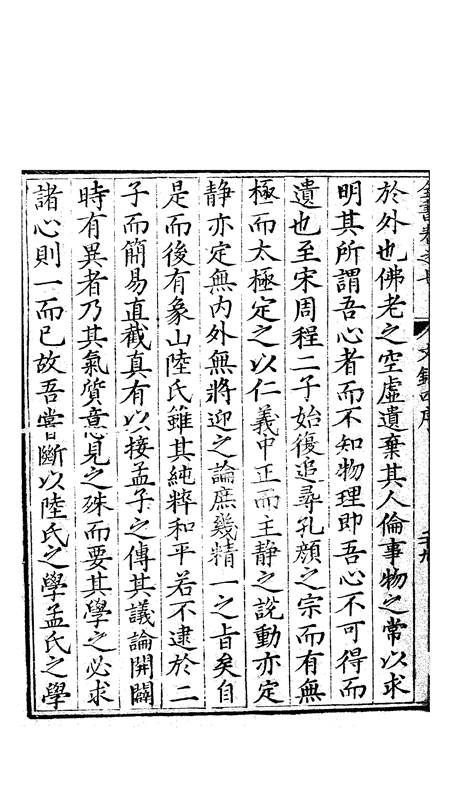 全書卷之七 文錄四序
於外也佛老之空虛遺棄其人倫事物之常以求
明其所謂吾心者而不知物理即吾心不可得而
遺也至宋周程二子始復追尋孔顏之宗而有無
極而太極定之以仁義中正而主静之說動亦定
静亦定無内外無將迎之論庶幾精一之旨矣自
是而後有象山陸氏雖其純粹和平若不逮於二
子而簡易直截真有以接孟子之傳其議論開闢
時有異者乃其氣質意見之殊而要其學之必求
諸心則一而已故吾嘗斷以陸氏之學孟氏之學